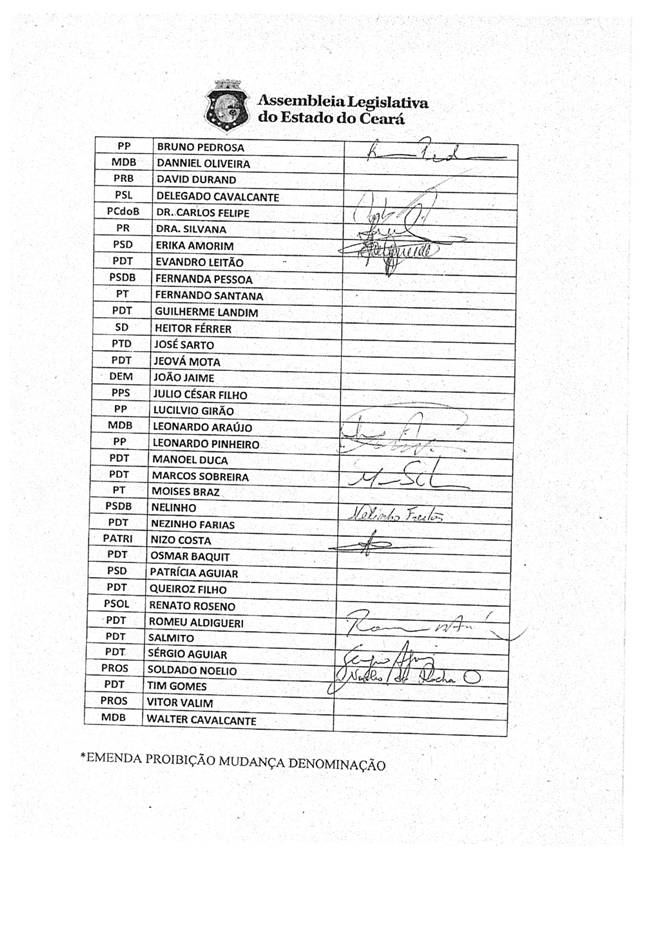 Assembleia Legislativa
do Estado do Ceará
PP BRUNO PEDROSA
MDB DANNIEL OLIVEIRA
PRB DAVID DURAND
PSL DELEGADO CAVALCANTE
PCdoB DR. CARLOS FELIPE
PR DRA. SILVANA
PSD ERIKA AMORIM
PDT EVANDRO LEITÃO
PSDB FERNANDA PESSOA
PT FERNANDO SANTANA
PDT GUILHERME LANDIM
SD HEITOR FÉRRER
PTD JOSÉ SARTO
PDT JEOVÁ MOTA
DEM JOÃO JAIME
PPS JULIO CÉSAR FILHO
PP LUCILVIO GIRÃO
MDB LEONARDO ARAÚJO
PP LEONARDO PINHEIRO
PDT MANOEL DUCA
PDT MARCOS SOBREIRA
PT MOISES BRAZ
PSDB NELINHO Nelinho Freitas
PDT NEZINHO FARIAS
PATRI NIZO COSTA
PDT OSMAR BAQUIT
PSD PATRÍCIA AGUIAR
PDT QUEIROZ FILHO
PSOL RENATO ROSENO
PDT ROMEU ALDIGUERI
PDT SALMITO
PDT SÉRGIO AGUIAR
PROS SOLDADO NOELIO
PDT TIM GOMES
PROS VITOR VALIM
MDB WALTER CAVALCANTE
*EMENDA PROIBIÇÃO MUDANÇA DENOMINAÇÃO